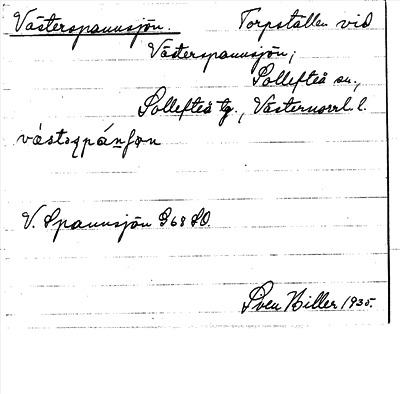 Västerspannsjön. Torpställen vid
Västerspannsjön;
Sollefteå sn.,
Sollefteå tg., Västernorrl. l.
V. Spannsjön 968 SO.
Sven Hiller 1935.